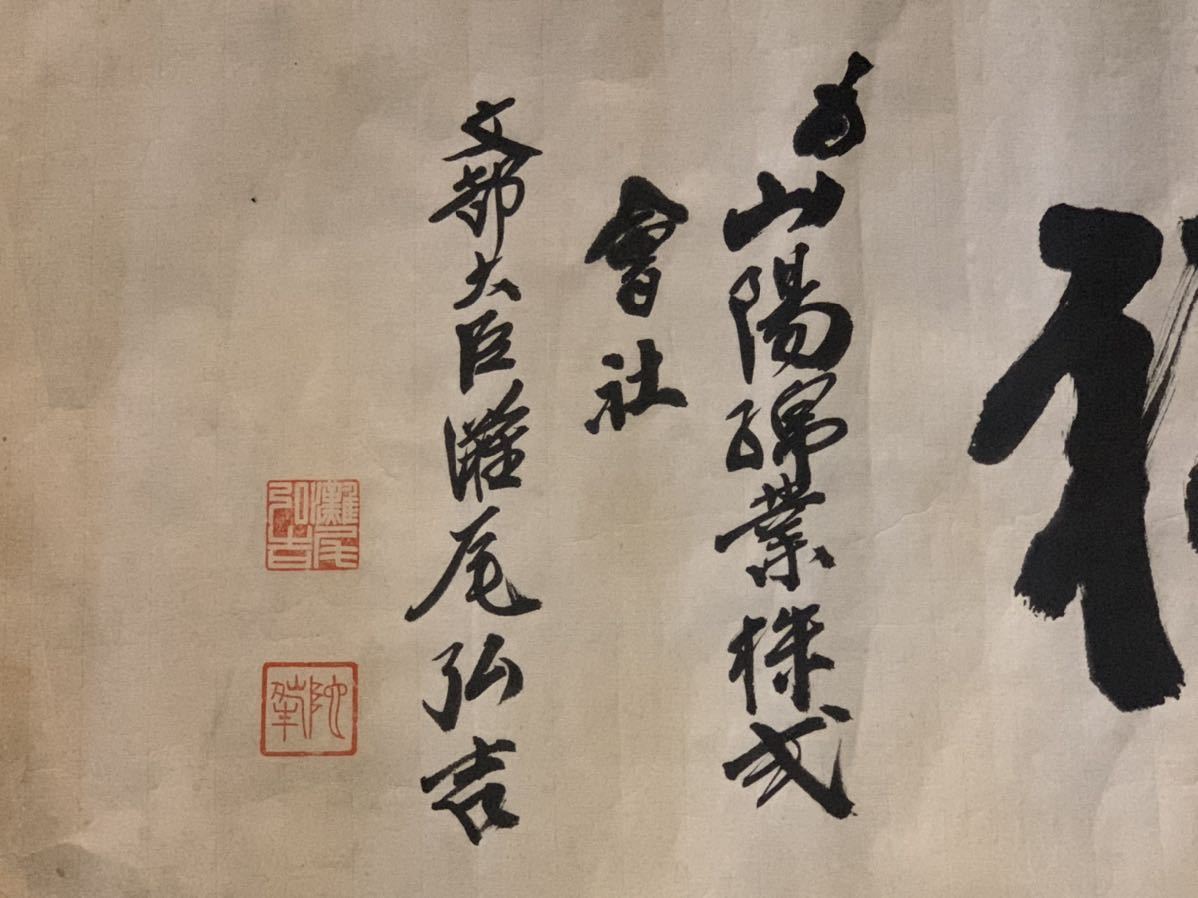 為山陽綿業株式
會社
文部大臣灘尾弘吉
灘尾弘吉